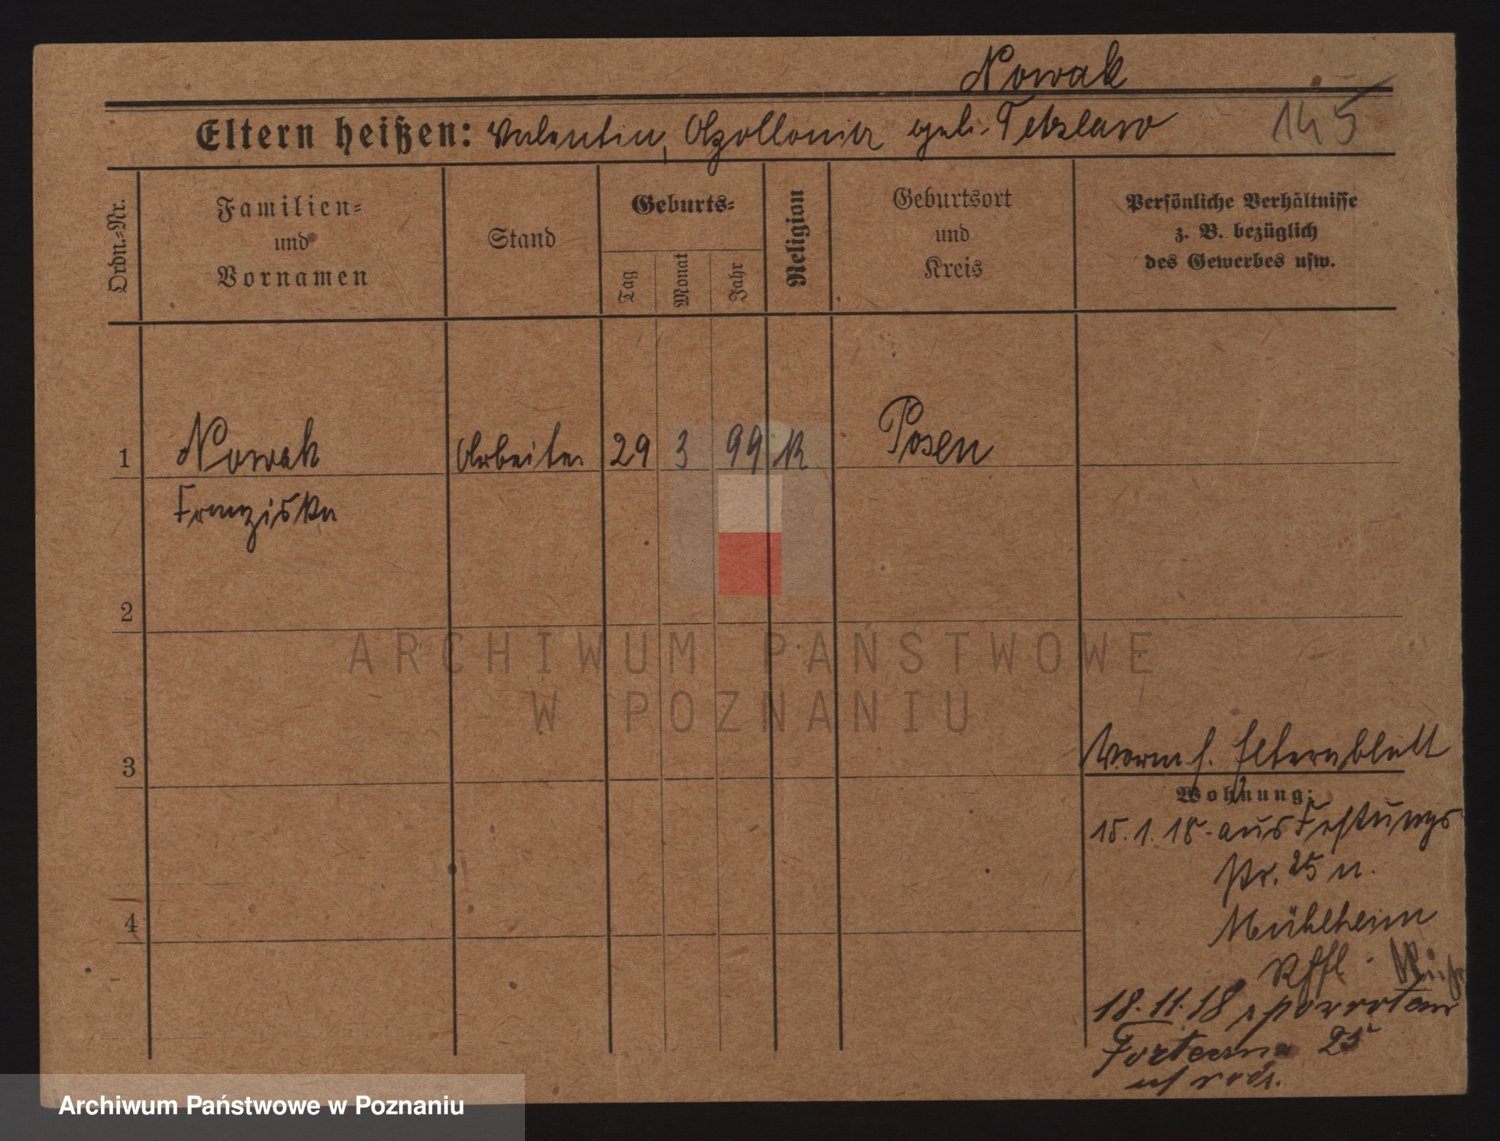 Nowak
Eltern heißen: Valentin, Apollonia geb. Tetzlaw
145
Ordn.-Nr.
Familien-
und
Vornamen
Stand
Geburts-
Tag
Monat
Jahr
Religion
Geburtsort
und
Kreis
Persönliche Verhältnisse
z. B. bezüglich
des Gewerbes usw.
1 Nowak Arbeiter 29 3 99 K Posen
Franziska
2
ARCHIWUM PAŃSTWOWE
W POZNANIU
3
Elternblatt
Wohnung:
15.1.18. aus Festungs
str. 25 n.
Mühlheim
4
18.11.18 z powrotem
25
Archiwum Państwowe w Poznaniu